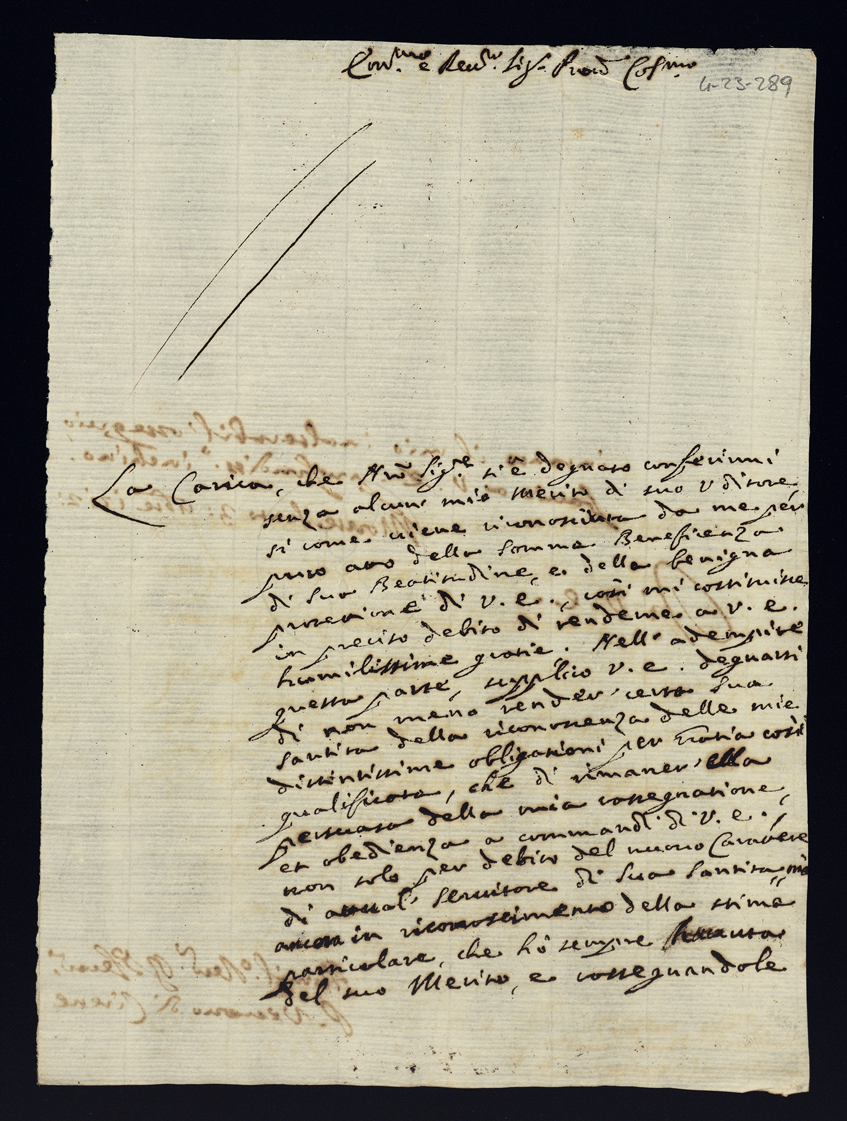 Em.mo e Rev.mo Sig.r Prōn Col.mo
4-23-289
La Carica, che Nr̃o Sig.re si è degnato conferirmi
senza alcun mio merito di suo Uditore
si come viene riconosciuta da me per
puro atto della somma Beneficenza
di Sua Beatitudine, e della benigna
protezione di V. E., così mi costituisce
in preciso debito di renderne a V. E.
humilissime grazie. Nell' adempire
questa parte, supplico V. E. degnarsi
di non meno render certa Sua
Santità della riconoscenza delle mie
distintissime obligazioni per grazia così
qualificata, che di rimaner' ella
persuasa della mia rassegnazione,
et obedienza a commandi di V. E.,
non solo per debito del nuovo Carattere
di attual' Servitore di Sua Santità, mà
ancora in riconoscimento della stima
particolare, che hò sempre havuta
del suo Merito, e rassegnandole